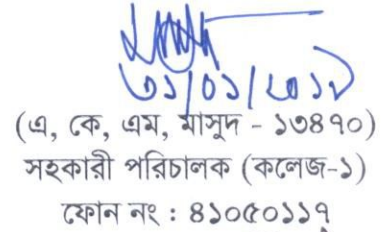 ৩১/০১/২০১৯
(এ, কে, এম, মাসুদ - ১৩৪৭০)
সহকারী পরিচালক (কলেজ-১)
ফোন নং : ৪১০৫০১১৭